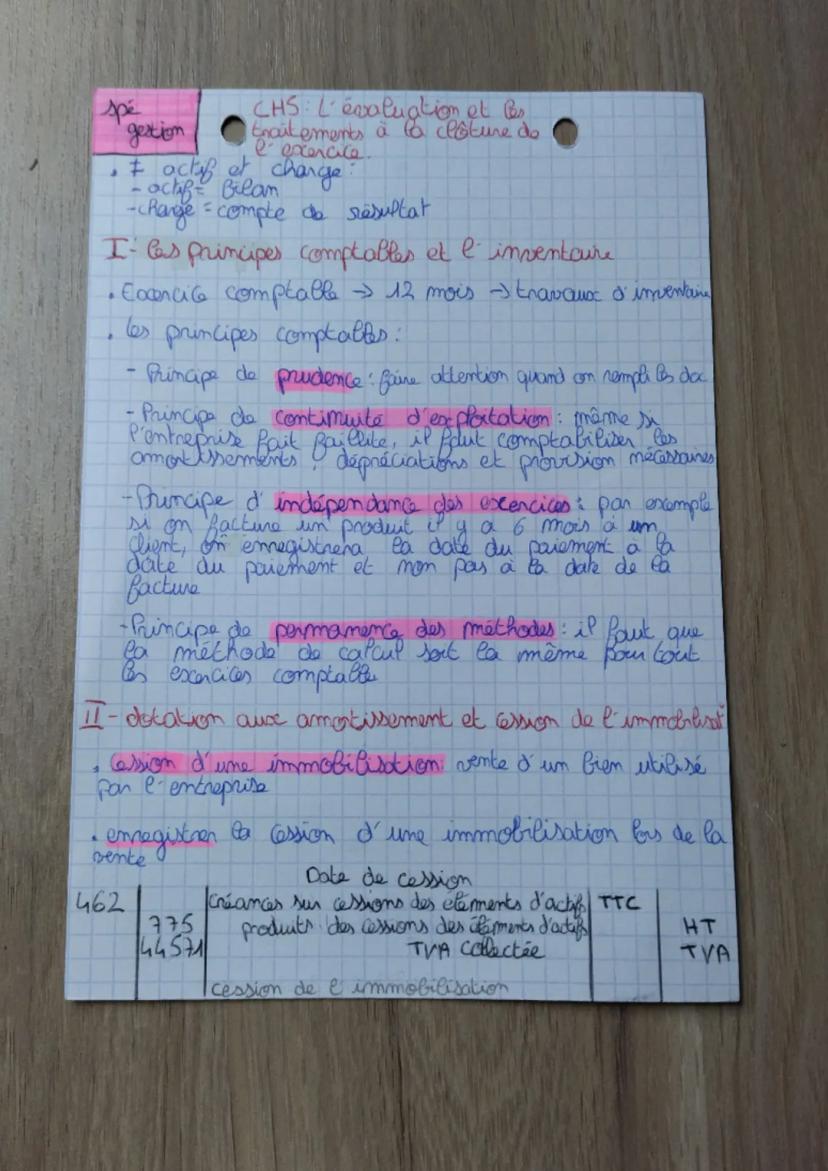 spé
gestion
CH5 : L'évaluation et les
traitements à la clôture de
l'exercice.
. ≠ actif et charge :
- actif = Bilan
- charge = compte de résultat
I - les principes comptables et l'inventaire
. Exercice comptable → 12 mois → travaux d'inventaire
. les principes comptables :
- Principe de prudence : faire attention quand on rempli les doc
- Principe de continuité d'exploitation : même si
l'entreprise fait faillite, il faut comptabiliser les
amortissements, dépréciations et provision nécessaires
- Principe d'indépendance des exercices : par exemple
si on facture un produit il y a 6 mois à un
client, on enregistrera la date du paiement à la
date du paiement et non pas à la date de la
facture
- Principe de permanence des méthodes : il faut que
la méthode de calcul soit la même pour tout
les exercices comptable
II - dotation aux amortissement et cession de l'immobilisat°
. Cession d'une immobilisation : vente d'un bien utilisé
par l'entreprise
. enregistrer la cession d'une immobilisation lors de la
vente
Date de cession
462 Créances sur cessions des éléments d'actifs TTC
775 produits des cessions des éléments d'actifs HT
44571 TVA collectée TVA
cession de l'immobilisation